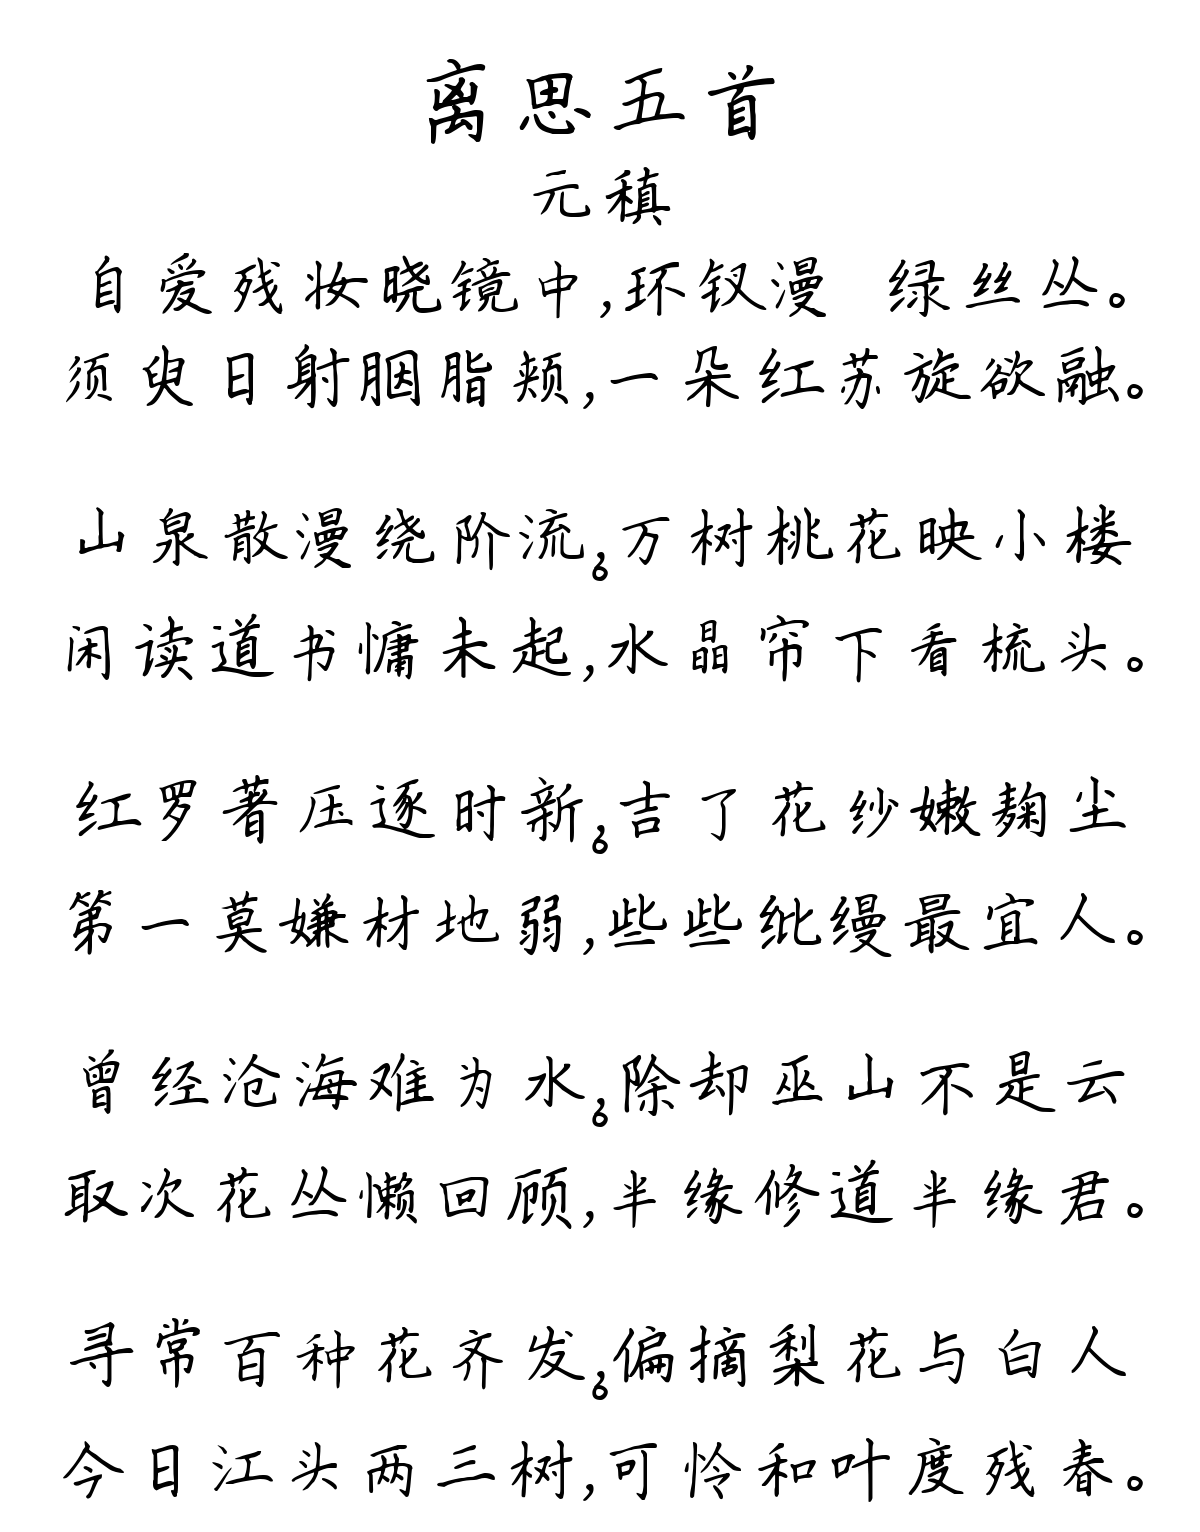 离思五首
元稹
自爱残妆晓镜中,环钗漫 绿丝丛。
须臾日射胭脂颊,一朵红苏旋欲融。
山泉散漫绕阶流,万树桃花映小楼
。
闲读道书慵未起,水晶帘下看梳头。
红罗著压逐时新,吉了花纱嫩麹尘
。
第一莫嫌材地弱,些些纰缦最宜人。
曾经沧海难为水,除却巫山不是云
。
取次花丛懒回顾,半缘修道半缘君。
寻常百种花齐发,偏摘梨花与白人
。
今日江头两三树,可怜和叶度残春。